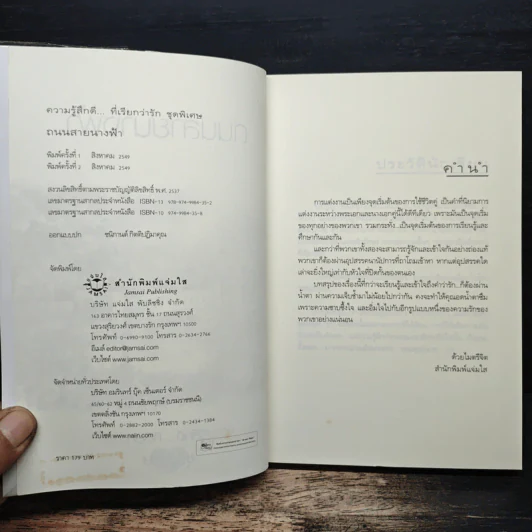 ความรู้สึกดี... ที่เรียกว่ารัก ชุดพิเศษ
ถนนสายนางฟ้า
พิมพ์ครั้งที่ 1 สิงหาคม 2549
พิมพ์ครั้งที่ 2 สิงหาคม 2549
สงวนลิขสิทธิ์ตามพระราชบัญญัติลิขสิทธิ์ พ.ศ. 2537
เลขมาตรฐานสากลประจำหนังสือ ISBN-13
เลขมาตรฐานสากลประจำหนังสือ ISBN-10
ออกแบบปก
จัดพิมพ์โดย
สำนักพิมพ์แจ่มใส
Jamsai Publishing
บริษัท แจ่มใส พับลิชชิ่ง จำกัด
อาคารไทยสมุทร ชั้น 17 ถนนสุรวงศ์
แขวงสุริยวงศ์ เขตบางรัก กรุงเทพฯ 10500
โทรศัพท์ โทรสาร
อีเมล์ editor@jamsai.com
เว็บไซต์ www.jamsai.com
จัดจำหน่ายทั่วประเทศโดย
บริษัท อมรินทร์ บุ๊ค เซ็นเตอร์ จำกัด
หมู่ 4 ถนนชัยพฤกษ์ (บรมราชชนนี)
เขตตลิ่งชัน กรุงเทพฯ 10170
โทรศัพท์ 0-2882-2000 โทรสาร
เว็บไซต์ www.naiin.com
ราคา บาท
คำนำ
การแต่งงานเป็นเพียงจุดเริ่มต้นของการใช้ชีวิตคู่ เป็นคำที่นิยามการ
แต่งงานระหว่างพระเอกและนางเอกคู่นี้ได้ดีทีเดียว เพราะมันเป็นจุดเริ่ม
ของทุกอย่างของพวกเขา รวมกระทั่ง...เป็นจุดเริ่มต้นของการเรียนรู้และ
ศึกษากันและกัน
และกว่าที่พวกเขาทั้งสองจะสามารถรู้จักและเข้าใจกันอย่างถ่องแท้
พวกเขาก็ต้องผ่านอุปสรรคนานัปการที่ถาโถมเข้าหา หากแต่อุปสรรคใด
เล่าจะยิ่งใหญ่เท่ากับหัวใจที่ปิดกั้นของตนเอง
บทสรุปของเรื่องนี้ที่กว่าจะเรียนรู้และเข้าใจถึงคำว่ารัก...ก็ต้องผ่าน
น้ำตา ผ่านความเจ็บช้ำมาไม่น้อยไปกว่ากัน คงจะทำให้คุณอดน้ำตาซึม
เพราะความซาบซึ้งใจ และอิ่มใจไปกับอีกรูปแบบหนึ่งของความรักของ
พวกเขาอย่างแน่นอน
ด้วยไมตรีจิต
สำนักพิมพ์แจ่มใส